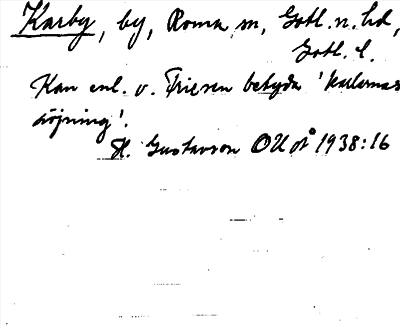 Karby, by, Roma sn, Gotl. n. hd,
Gotl. l.
Kan enl. v. Friesen betyda 'karlarnas
röjning'.
H. Gustavson OUÅ 1938:16